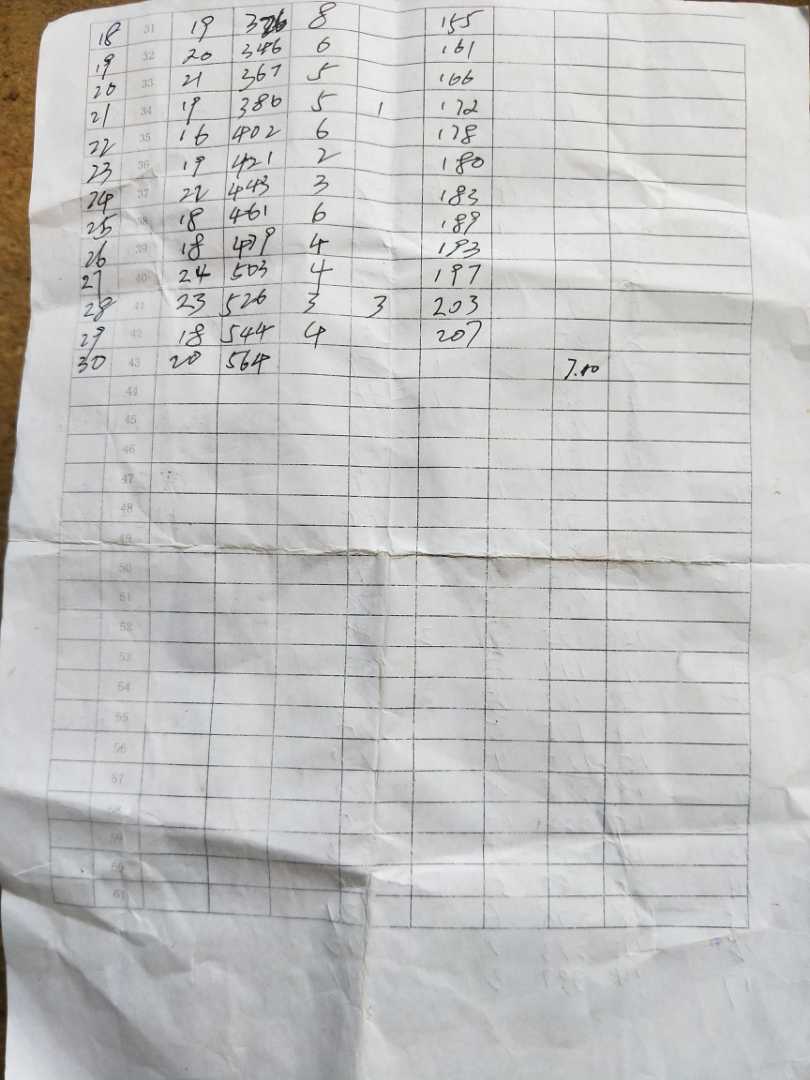 18 31 19 326 8 155
19 32 20 346 6 161
20 33 21 367 5 166
21 34 19 386 5 1 172
22 35 16 402 6 178
23 36 19 421 2 180
24 37 22 443 3 183
25 38 18 461 6 189
26 39 18 479 4 193
27 40 24 503 4 197
28 41 23 526 3 3 203
29 42 18 544 4 207
30 43 20 564 7.10
44
45
46
47
48
49
50
51
52
53
54
55
56
57
58
59
60
61